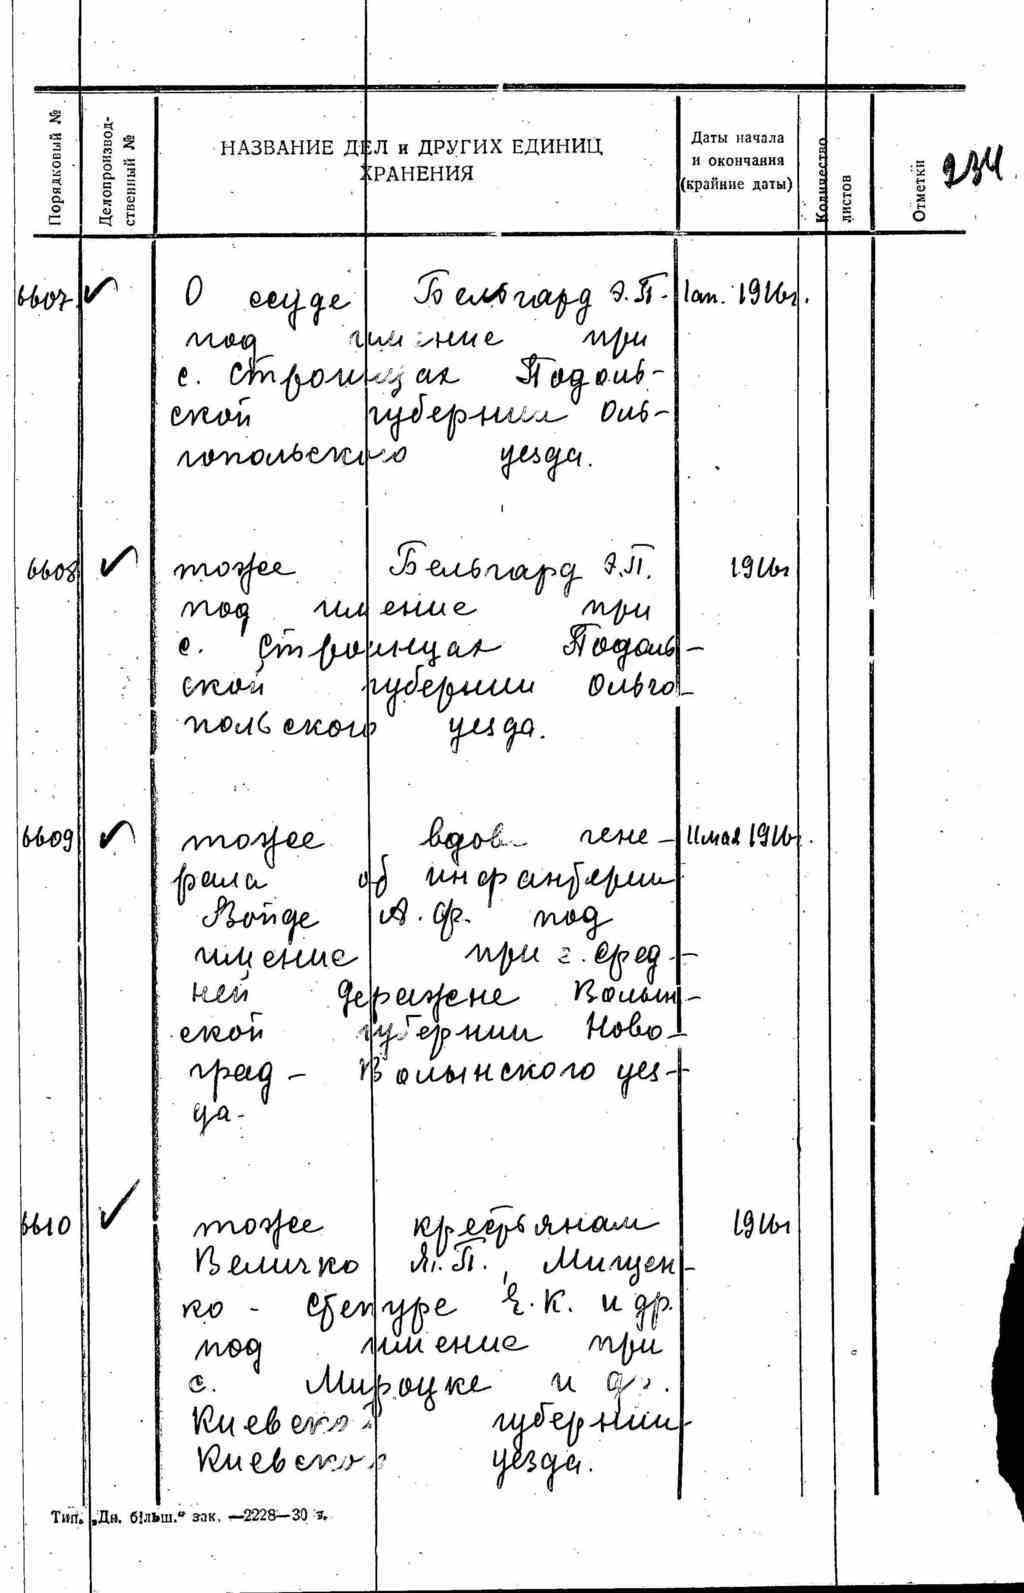 Порядковый №
Делопроизвод-
ственный №
НАЗВАНИЕ ДЕЛ и ДРУГИХ ЕДИНИЦ
ХРАНЕНИЯ
Даты начала
и окончания
(крайние даты)
Количество
листов
Отметки
234
6607 О ссуде Бельгард Э.П. 1ап. 1916г.
под имение при
с. Строинцах Подоль-
ской губернии Оль-
гопольского уезда.
6608 тоже Бельгард Э.П. 1916г
под имение при
с. Строинцах Подоль-
ской губернии Ольго-
польского уезда.
6609 тоже вдов гене- 11 мая 1916г.
рала об инфантерии
Войде А. Ф. под
имение при с. Сред-
ней Деражне Волын-
ской губернии Ново-
град- Волынского уез-
да.
6610 тоже крестьянам 1916г
Величко Я.П., Мищен-
ко - Степуре Е.К. и др.
под имение при
с. Мироцке и др.
Киевской губернии
Киевского уезда.
Тип. „Дн. більш." зак. —2228—30 т.